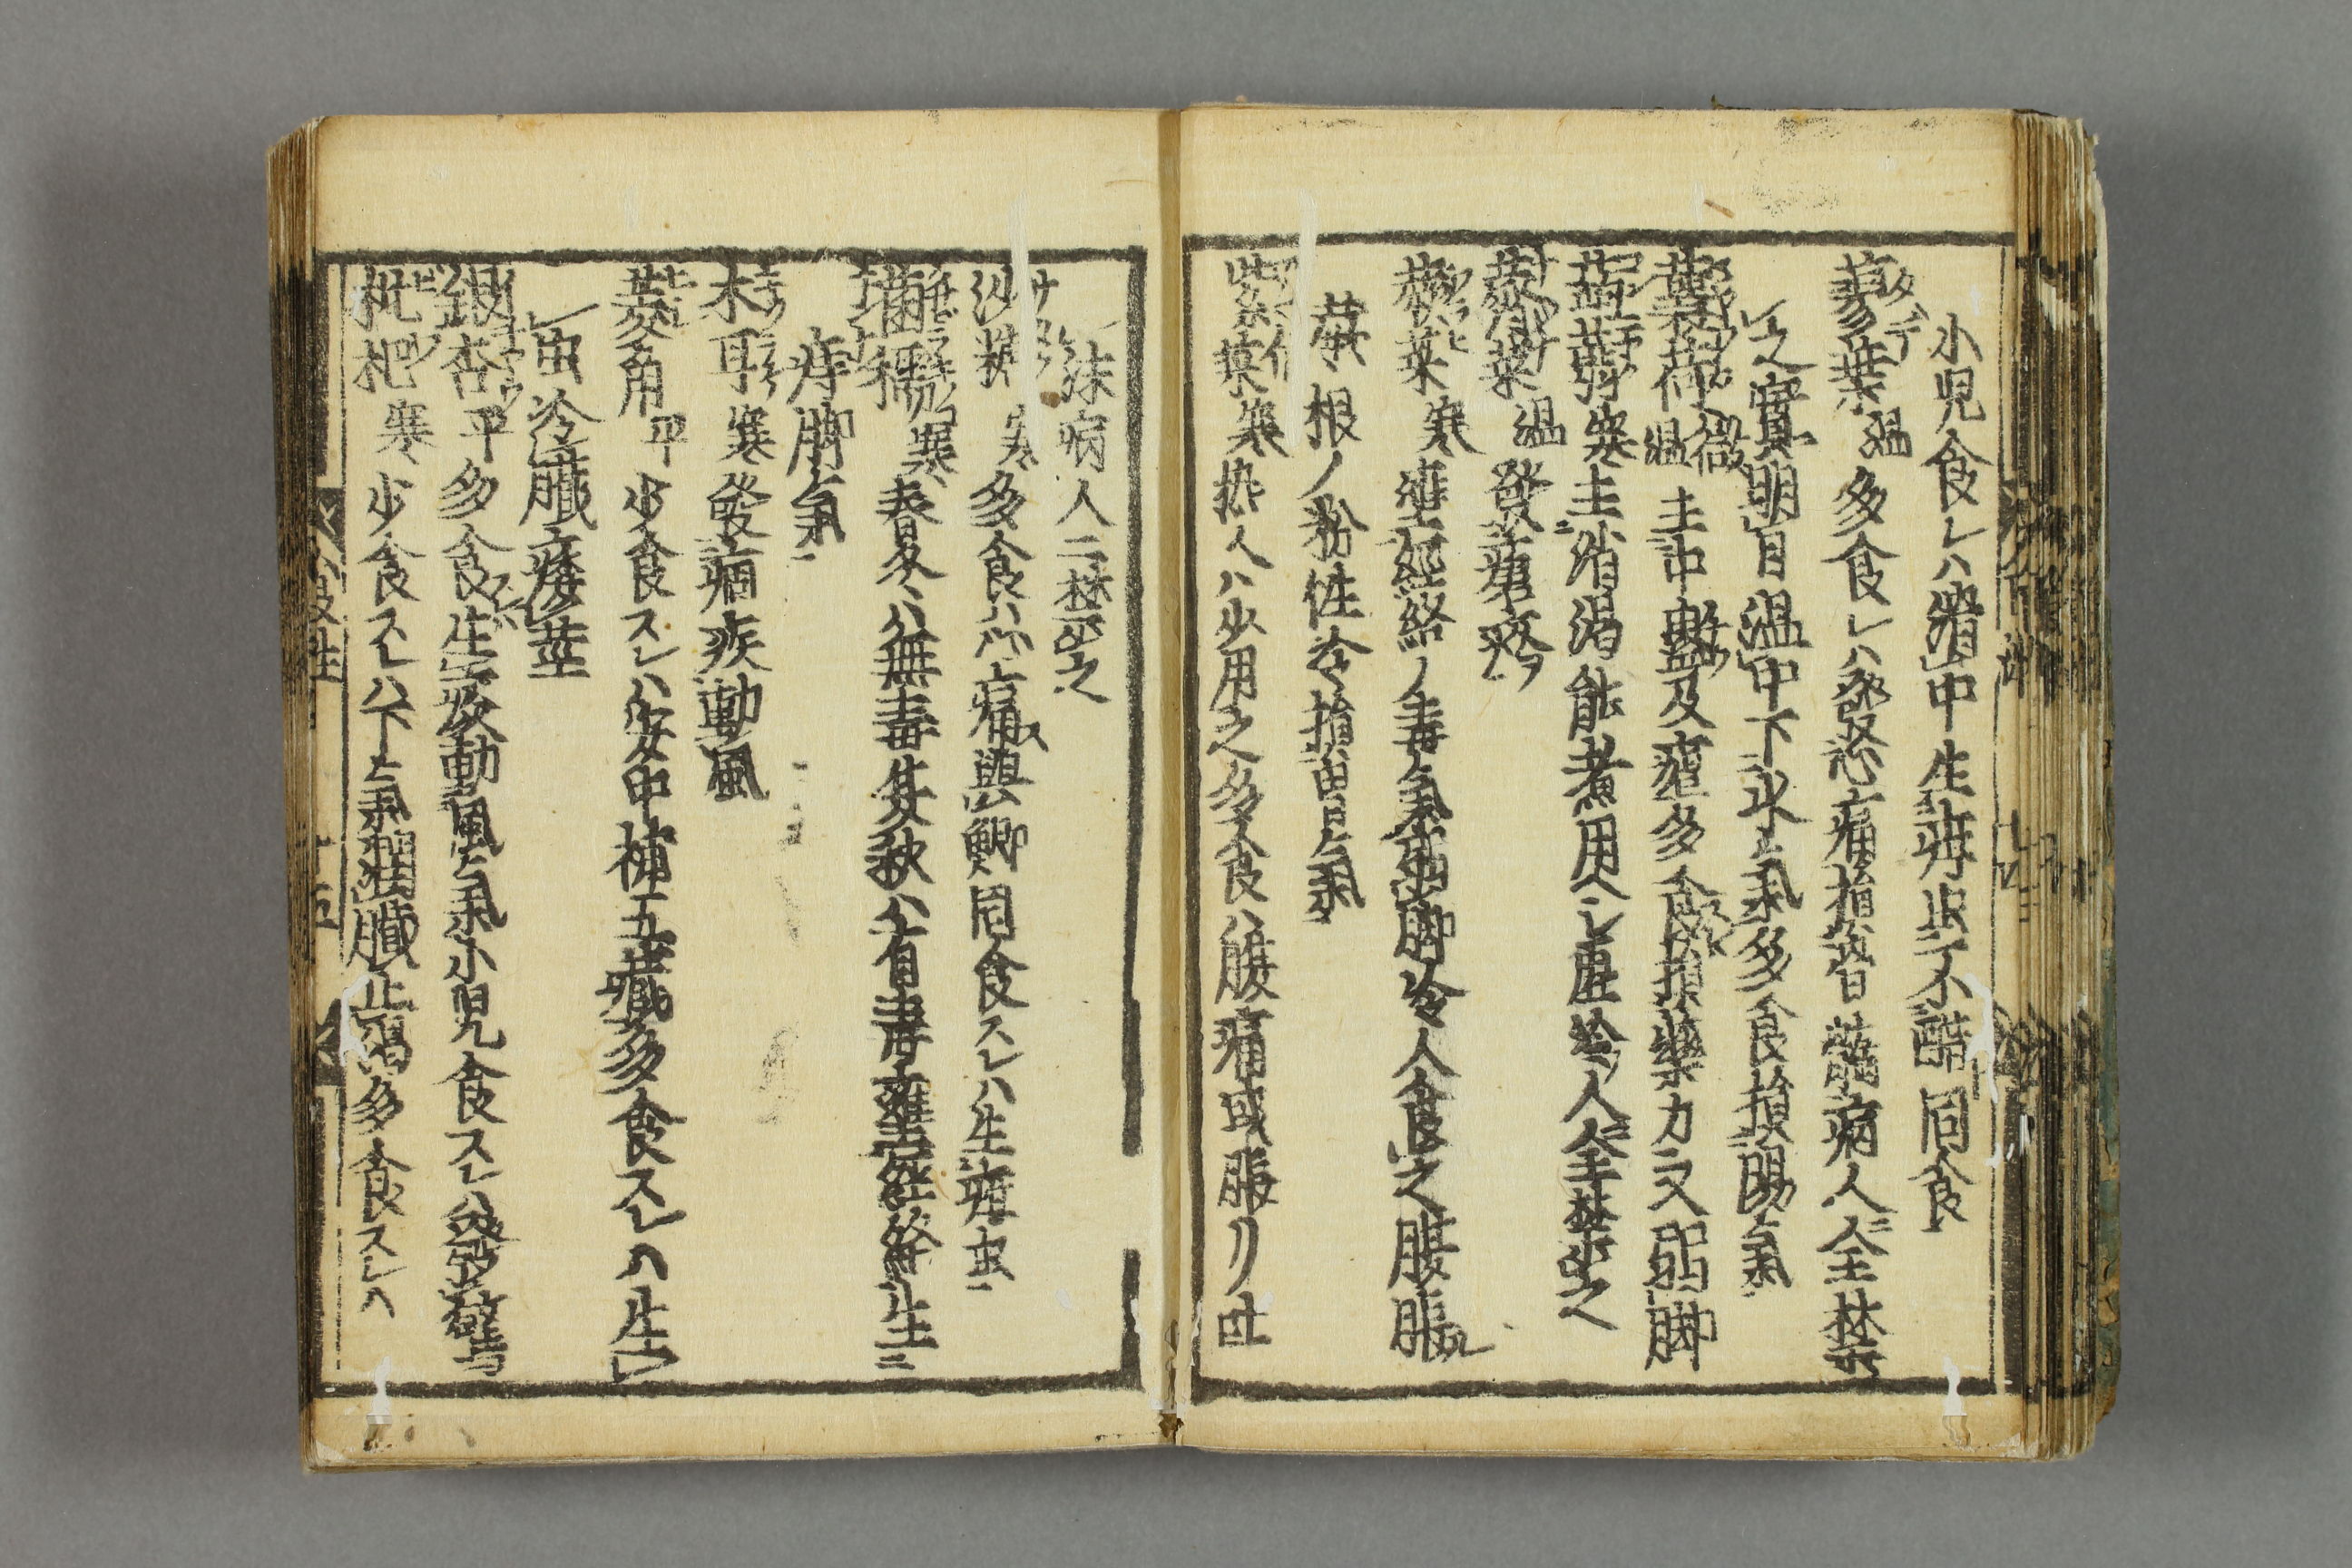 小児食レハ滞中生蚘虫不與醋同食
蓼葉 タデ 温 多食レハ發心痛損髓 諸病人全禁
之實明目温中下水上氣多食損陽氣
蘘荷 微温 主中蠱及瘧多食損藥力又弱脚
菰蒋 寒 主消渇能煮用ヘシ虚冷人全禁之
蔊菜 温 發瘡疥
蕨菜 寒 壅經絡ノ毒氣 弱脚冷人食之腹脹
蕨根ノ粉性冷損目上氣
紫菜 寒 熱人ハ少用之多食ハ腹痛或脹リ吐
沫病人ニ禁之
沙糖 寒 多食ハ心痛與鯽同食スレハ生疳虫
寒 春冬ハ無毒 秋ハ有毒壅經絡生
痔脚氣
木耳 寒 發痼疾動風
菱角 ヒシ 平 少食スレハ安中補五臓多食スレハ生
虫冷臓痿莖
銀杏 平 多食 生痰動風上氣小児食スレハ發驚
枇杷 寒 少食スレハ下上氣潤臓止渇多食スレハ